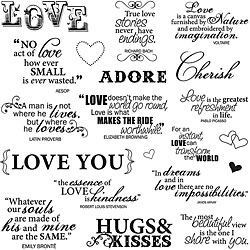 LOVE
"NO
act of
love
how ever
SMALL
is ever
wasted."
AESOP
True love
stories
never have
endings.
RICHARD BACH
Love is a canvas
furnished by
Nature
and embroidered by
imagination.
VOLTAIRE
ADORE
Cherish
"A man is not
where he
lives, but
where he
loves"
LATIN PROVERB
"LOVE doesn't make the
world go round,
Love is what
MAKES THE RIDE
worthwhile."
ELIZABETH BROWNING
Love is the
greatest
refreshment
in life.
PABLO PICASSO
For an
instant
LOVE
can
transform
the WORLD
LOVE YOU
"the essence of
LOVE is
kindness"
ROBERT LOUIS STEVENSON
"In
dreams
and in
love
there are no
impossibilities."
JANOS ARNAY
"Whatever
our souls
are made of
his and mine
are the SAME."
EMILY BRONTË
HUGS&
KISSES
The most
beautiful
view
is the one I
share with
you